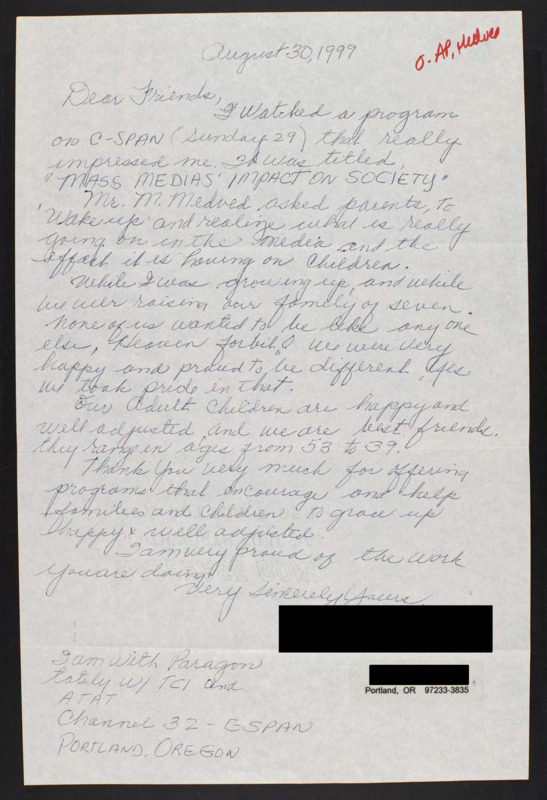 August 30, 1999
O-AP, Medved
Dear Friends,
I Watched a program
on C-SPAN (Sunday 29) that really
impressed me. It was titled,
"MASS MEDIAS' IMPACT ON SOCIETY"
Mr. M. Medved asked parents, to
'Wake up' and realize what is really
going on in the media and the
effect it is having on Children.
While I was growing up, and while
we wer raising our family of seven.
None of us wanted to be like any one
else, Heaven forbid! We were very
happy and proud to be different. Yes
we took pride in that.
Our Adult Children are happy and
well adjusted and we are best friends.
they range in ages from 53 to 39.
Thank you very much for offering
programs that encourage and help
families and children to grow up
happy & well adjusted.
I am very proud of the work
you are doing.
Very Sincerely Yours
I am With Paragon
lately W/ TCI and
ATAT
Channel 32 - CSPAN
PORTLAND, OREGON
Portland, OR 97233-3835